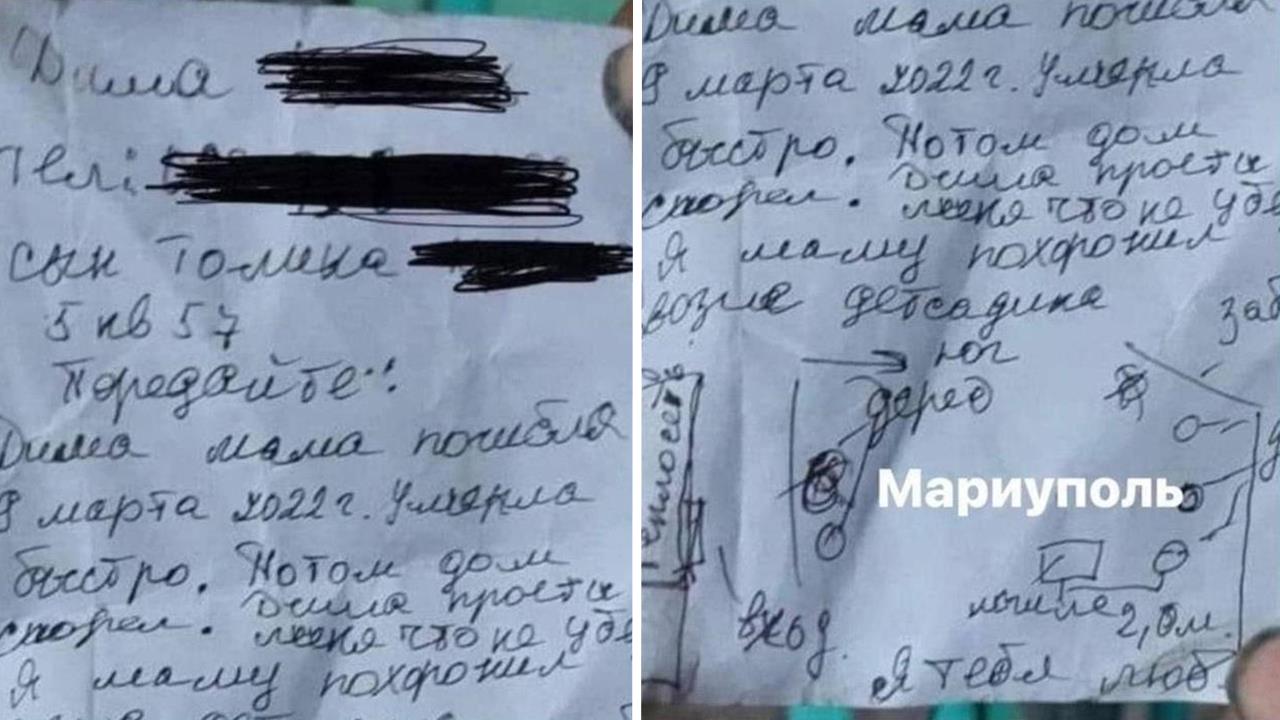 Дима
Тел:
сын Толика
5 кв 57
Передайте!
Дима мама погибла
9 марта 2022 г. Умерла
быстро. Потом дом
сгорел. Дима прости
меня что не убе
Я маму похоронил
Дима мама погибла
9 марта 2022 г. Умерла
быстро. Потом дом
сгорел. Дима прости
меня что не убе
Я маму похоронил
возле детсадика
заб
юг
дерев
Теплосеть
Мариуполь
вход.
могила 2,0 м.
Я тебя люб